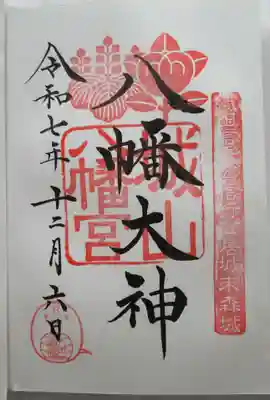 末森城
八幡大神
城山
八幡宮
令和七年十二月六日